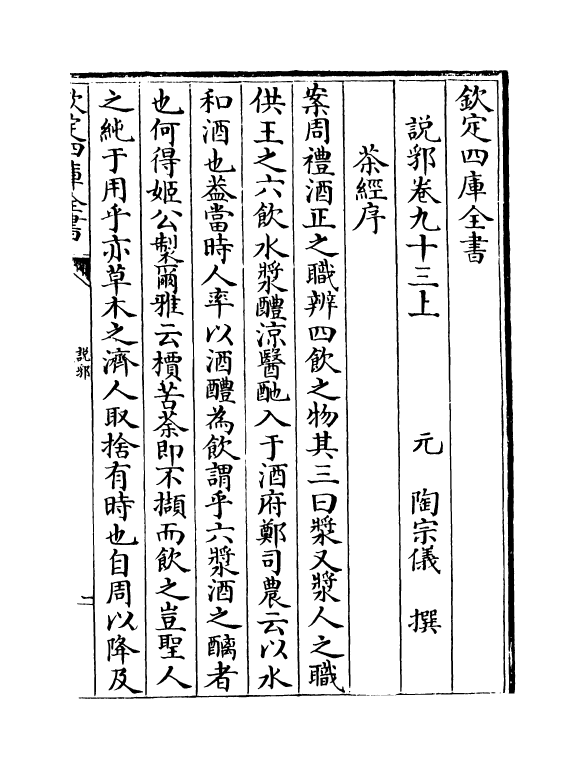 欽定四庫全書
說郛卷九十三上
元 陶宗儀 撰
茶經序
案周禮酒正之職辨四飲之物其三曰漿又漿人之職
供王之六飲水漿醴涼醫酏入于酒府鄭司農云以水
和酒也葢當時人率以酒醴為飲謂乎六漿酒之醨者
也何得姬公製爾雅云檟苦荼即不擷而飲之豈聖人
之純于用乎亦草木之濟人取捨有時也自周以降及
欽定四庫全書
說郛
一